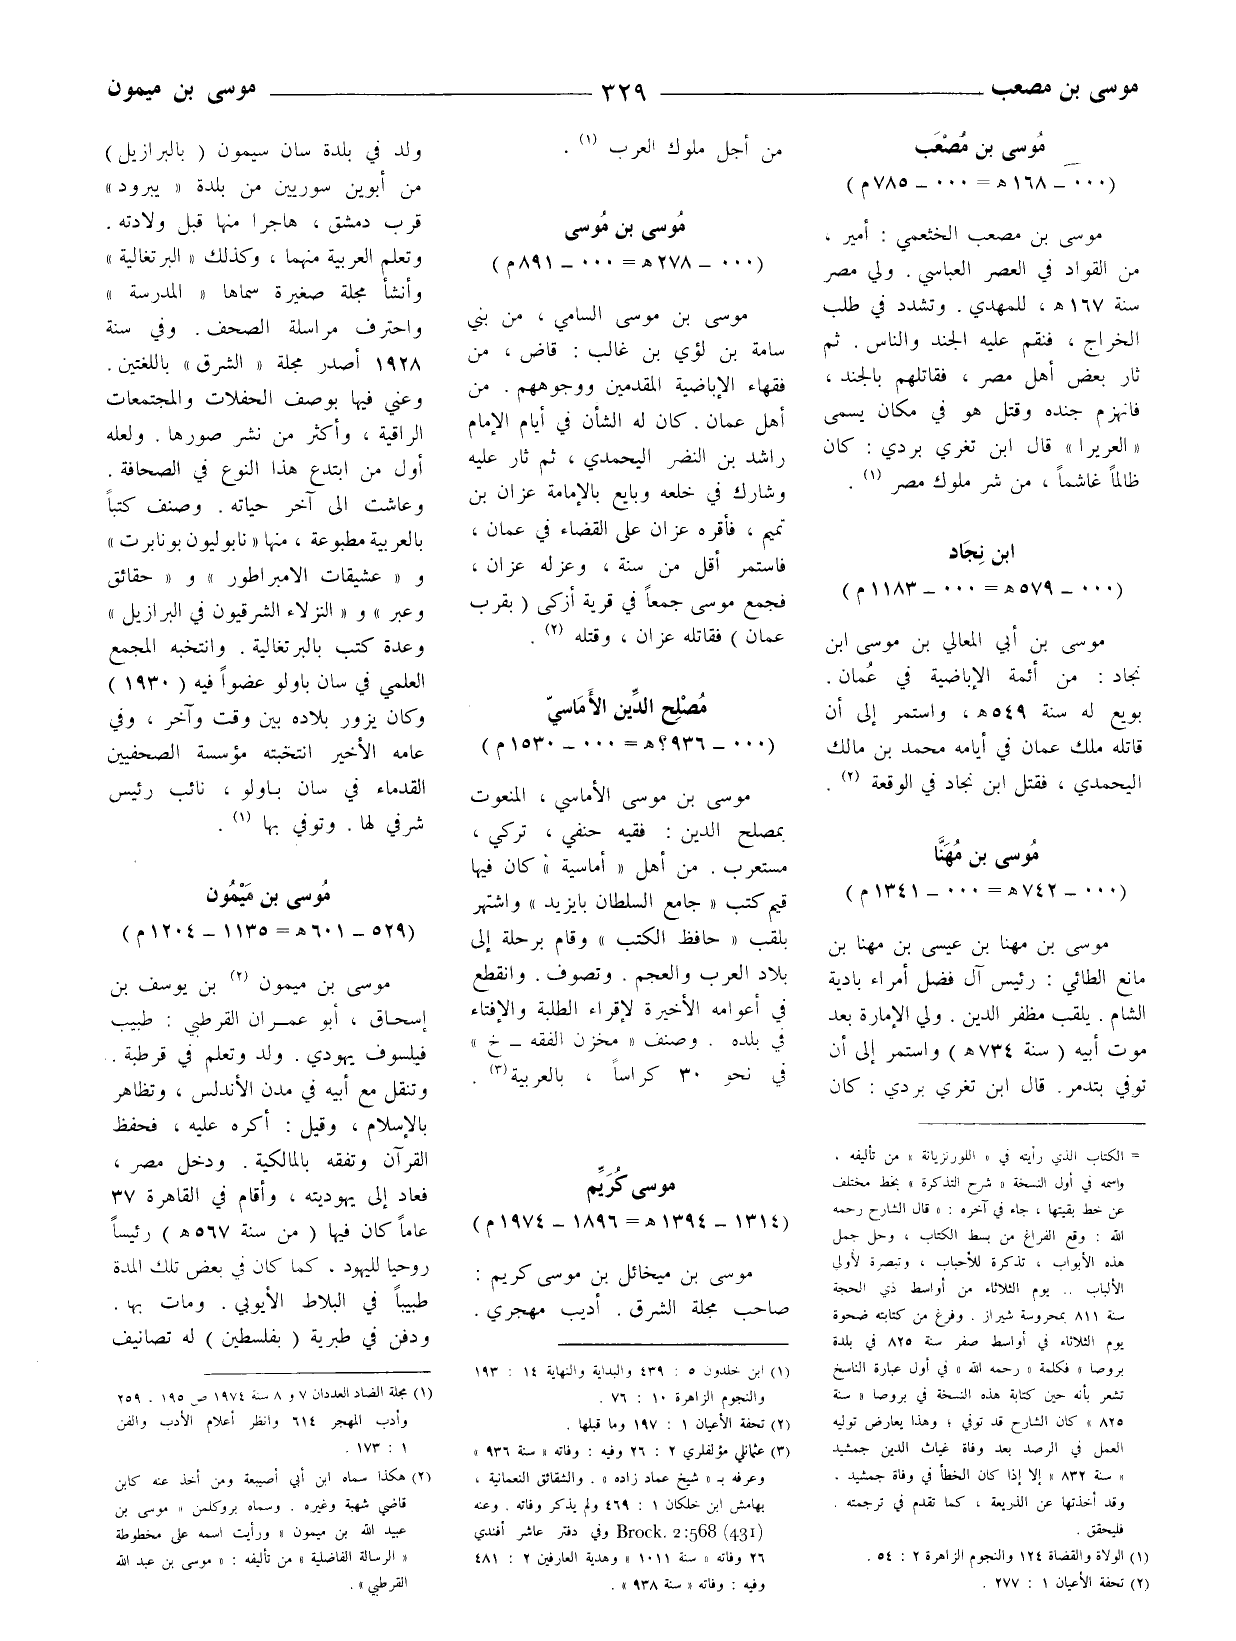 موسى بن مصعب ــــ ٣٢٩ ــــ موسى بن ميمون
مُوسى بن مُصْعَب
(٠٠٠ ــ ١٦٨ هـ = ٠٠٠ ــ ٧٨٥ م)
موسى بن مصعب الخثعمي : أمير ،
من القواد في العصر العباسي . ولي مصر
سنة ١٦٧ هـ ، للمهدي . وتشدد في طلب
الخراج ، فنقم عليه الجند والناس . ثم
ثار بعض أهل مصر ، فقاتلهم بالجند ،
فانهزم جنده وقتل هو في مكان يسمى
« العريرا » قال ابن تغري بردي : كان
ظالماً غاشماً ، من شر ملوك مصر (١) .
ابن نِجَاد
(٠٠٠ ــ ٥٧٩ هـ = ٠٠٠ ــ ١١٨٣ م)
موسى بن أبي المعالي بن موسى ابن
نجاد : من أئمة الإباضية في عُمان .
بويع له سنة ٥٤٩ هـ ، واستمر إلى أن
قاتله ملك عمان في أيامه محمد بن مالك
اليحمدي ، فقتل ابن نجاد في الوقعة (٢) .
مُوسى بن مُهَنَّا
(٠٠٠ ــ ٧٤٢ هـ = ٠٠٠ ــ ١٣٤١ م)
موسى بن مهنا بن عيسى بن مهنا بن
مانع الطائي : رئيس آل فضل أمراء بادية
الشام . يلقب مظفر الدين . ولي الإمارة بعد
موت أبيه ( سنة ٧٣٤ هـ ) واستمر إلى أن
توفي بتدمر . قال ابن تغري بردي : كان
= الكتاب الذي رأيته في « اللورنزيانة » من تأليفه .
واسمه في أول النسخة « شرح التذكرة » بخط مختلف
عن خط بقيتها ، جاء في آخره : « قال الشارح رحمه
الله : وقع الفراغ من بسط الكتاب ، وحل جمل
هذه الأبواب ، تذكرة للأحباب ، وتبصرة لأولي
الألباب .. يوم الثلاثاء من أواسط ذي الحجة
سنة ٨١١ بمحروسة شيراز . وفرغ من كتابته ضحوة
يوم الثلاثاء في أواسط صفر سنة ٨٢٥ في بلدة
بروصا » فكلمة « رحمه الله » في أول عبارة الناسخ
تشعر بأنه حين كتابة هذه النسخة في بروصا « سنة
٨٢٥ » كان الشارح قد توفي ؛ وهذا يعارض توليه
العمل في الرصد بعد وفاة غياث الدين جمشيد
« سنة ٨٣٢ » إلا إذا كان الخطأ في وفاة جمشيد .
وقد أخذتها عن الذريعة ، كما تقدم في ترجمته .
فليحقق .
(١) الولاة والقضاة ١٢٤ والنجوم الزاهرة ٢ : ٥٤ .
(٢) تحفة الأعيان ١ : ٢٧٧ .
من أجل ملوك العرب (١) .
مُوسى بن مُوسى
(٠٠٠ ــ ٢٧٨ هـ = ٠٠٠ ــ ٨٩١ م)
موسى بن موسى السامي ، من بني
سامة بن لؤي بن غالب : قاض ، من
فقهاء الإباضية المقدمين ووجوههم . من
أهل عمان . كان له الشأن في أيام الإمام
راشد بن النضر اليحمدي ، ثم ثار عليه
وشارك في خلعه وبايع بالإمامة عزان بن
تميم ، فأقره عزان على القضاء في عمان ،
فاستمر أقل من سنة ، وعزله عزان ،
فجمع موسى جمعاً في قرية أزكى ( بقرب
عمان ) فقاتله عزان ، وقتله (٢) .
مُصْلِح الدِّين الأَمَاسيّ
(٠٠٠ ــ ٩٣٦؟ هـ = ٠٠٠ ــ ١٥٣٠ م)
موسى بن موسى الأماسي ، المنعوت
بمصلح الدين : فقيه حنفي ، تركي ،
مستعرب . من أهل « أماسية » كان فيها
قيم كتب « جامع السلطان بايزيد » واشتهر
بلقب « حافظ الكتب » وقام برحلة إلى
بلاد العرب والعجم . وتصوف . وانقطع
في أعوامه الأخيرة لإقراء الطلبة والإفتاء
في بلده . وصنف « مخزن الفقه ــ خ »
في نحو ٣٠ كراساً ، بالعربية (٣) .
موسى كُرَيِّم
(١٣١٤ ــ ١٣٩٤ هـ = ١٨٩٦ ــ ١٩٧٤ م)
موسى بن ميخائل بن موسى كريم :
صاحب مجلة الشرق . أديب مهجري .
(١) ابن خلدون ٥ : ٤٣٩ والبداية والنهاية ١٤ : ١٩٣
والنجوم الزاهرة ١٠ : ٧٦ .
(٢) تحفة الأعيان ١ : ١٩٧ وما قبلها .
(٣) عثمانلي مؤلفلري ٢ : ٢٦ وفيه : وفاته « سنة ٩٣٦ »
وعرفه بـ « شيخ عماد زاده » . والشقائق النعمانية ،
بهامش ابن خلكان ١ : ٤٦٩ ولم يذكر وفاته . وعنه
Brock. 2:568 (431) وفي دفتر عاشر أفندي
٢٦ وفاته « سنة ١٠١١ » وهدية العارفين ٢ : ٤٨١
وفيه : وفاته « سنة ٩٣٨ » .
ولد في بلدة سان سيمون ( بالبرازيل )
من أبوين سوريين من بلدة « يبرود »
قرب دمشق ، هاجرا منها قبل ولادته .
وتعلم العربية منهما ، وكذلك « البرتغالية »
وأنشأ مجلة صغيرة سماها « المدرسة »
واحترف مراسلة الصحف . وفي سنة
١٩٢٨ أصدر مجلة « الشرق » باللغتين .
وعني فيها بوصف الحفلات والمجتمعات
الراقية ، وأكثر من نشر صورها . ولعله
أول من ابتدع هذا النوع في الصحافة .
وعاشت الى آخر حياته . وصنف كتباً
بالعربية مطبوعة ، منها « نابوليون بونابرت »
و « عشيقات الامبراطور » و « حقائق
وعبر » و « النزلاء الشرقيون في البرازيل »
وعدة كتب بالبرتغالية . وانتخبه المجمع
العلمي في سان باولو عضواً فيه ( ١٩٣٠ )
وكان يزور بلاده بين وقت وآخر ، وفي
عامه الأخير انتخبته مؤسسة الصحفيين
القدماء في سان باولو ، نائب رئيس
شرفي لها . وتوفي بها (١) .
مُوسى بن مَيْمُون
(٥٢٩ ــ ٦٠١ هـ = ١١٣٥ ــ ١٢٠٤ م)
موسى بن ميمون (٢) بن يوسف بن
إسحاق ، أبو عمران القرطبي : طبيب
فيلسوف يهودي . ولد وتعلم في قرطبة .
وتنقل مع أبيه في مدن الأندلس ، وتظاهر
بالإسلام ، وقيل : أكره عليه ، فحفظ
القرآن وتفقه بالمالكية . ودخل مصر ،
فعاد إلى يهوديته ، وأقام في القاهرة ٣٧
عاماً كان فيها ( من سنة ٥٦٧ هـ ) رئيساً
روحيا لليهود . كما كان في بعض تلك المدة
طبيباً في البلاط الأيوبي . ومات بها .
ودفن في طبرية ( بفلسطين ) له تصانيف
(١) مجلة الضاد العددان ٧ و ٨ سنة ١٩٧٤ ص ١٩٥ . ٢٥٩
وأدب المهجر ٦١٤ وانظر أعلام الأدب والفن
١ : ١٧٣ .
(٢) هكذا سماه ابن أبي أصيبعة ومن أخذ عنه كابن
قاضي شهبة وغيره . وسماه بروكلمن « موسى بن
عبيد الله بن ميمون » ورأيت اسمه على مخطوطة
« الرسالة الفاضلية » من تأليفه : « موسى بن عبد الله
القرطبي » .